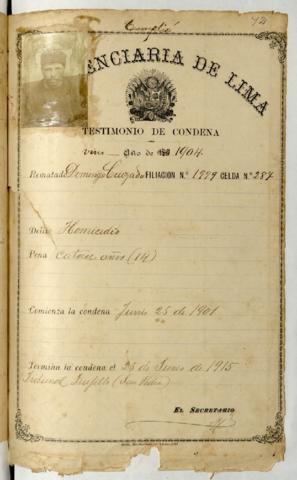 Cumplió
72
ENCIARIA DE LIMA
TESTIMONIO DE CONDENA
Año de 1904
Rematado Domingo Cruzado FILIACION N.º 1999 CELDA N.º 287
Delito Homicidio
Pena catorce años (14)
Comienza la condena Junio 25 de 1901
Termina la condena el 25 de Junio de 1915
Tribunal Trujillo (San Pedro)
EL SECRETARIO